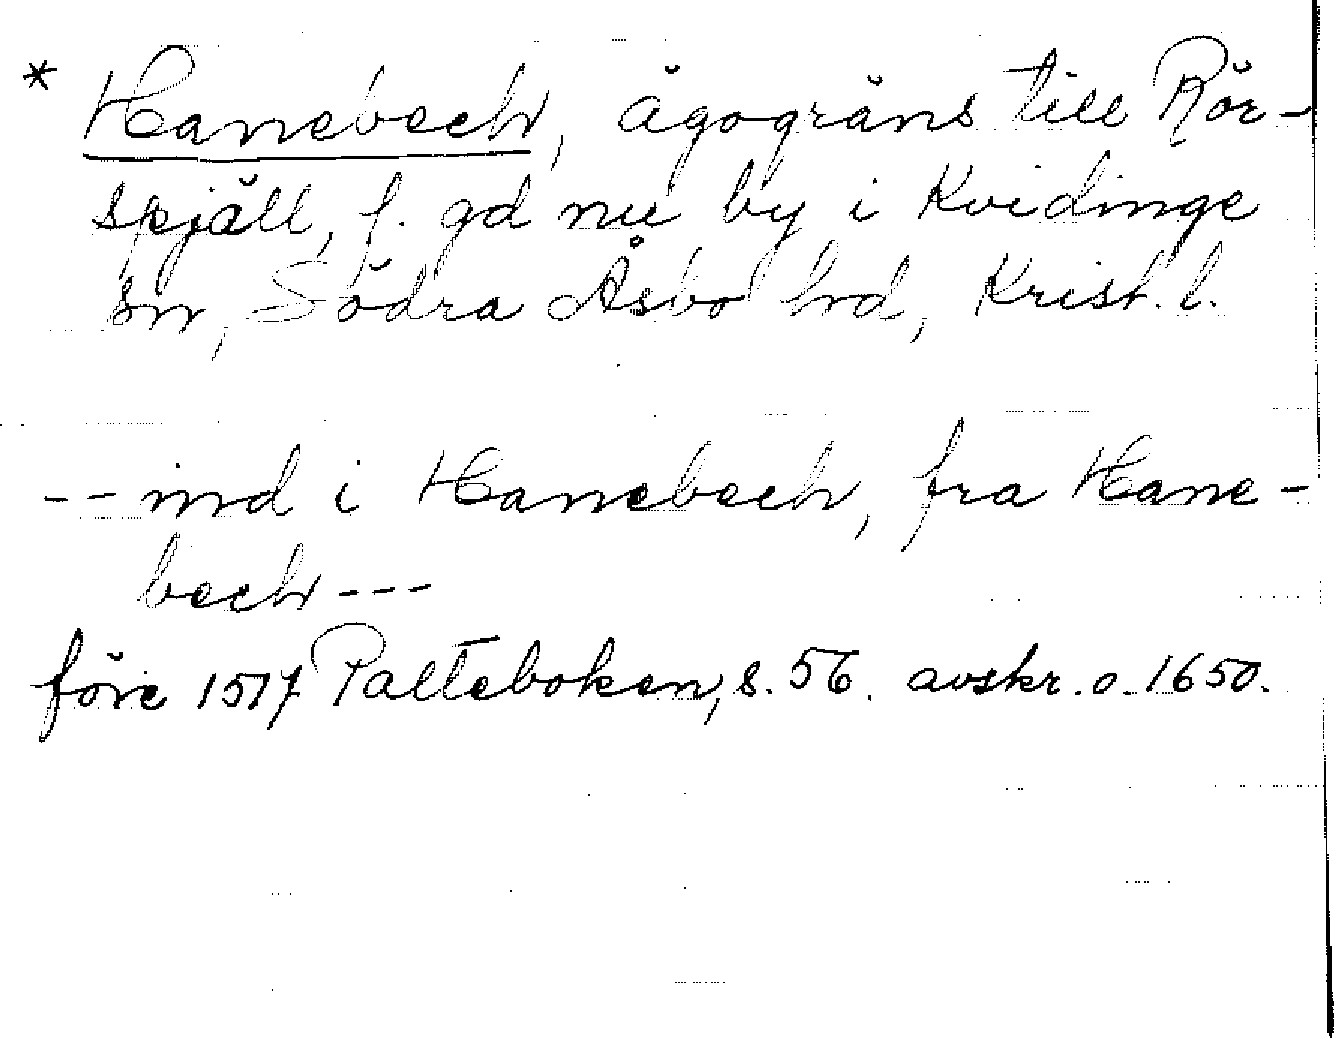 * Hanebech, ägogräns till Rör-
spjäll, f. gd nu by i Kvidinge
sn, Södra Åsbo hd, Krist. l.
-- ind i Hanebech, fra Hane-
bech ---
före 1517 Palteboken, s. 56. avskr. o. 1650.